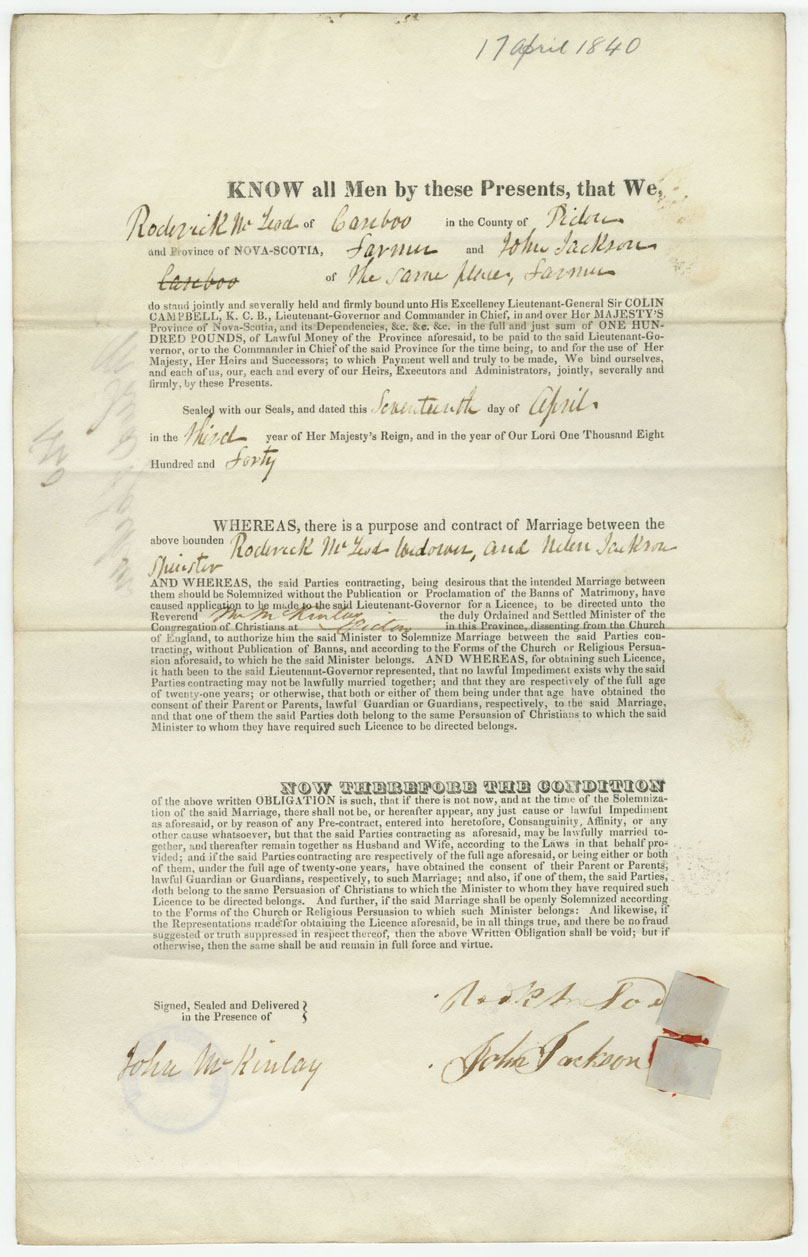 17 April 1840
KNOW all Men by these Presents, that We,
Roderick Mc Leod of Cariboo in the County of Pictou
and Province of NOVA-SCOTIA, Farmer and John Jackson
Cariboo of the same place, Farmer
do stand jointly and severally held and firmly bound unto His Excellency Lieutenant-General Sir COLIN
CAMPBELL, K. C. B., Lieutenant-Governor and Commander in Chief, in and over Her MAJESTY'S
Province of Nova-Scotia, and its Dependencies, &c. &c. &c. in the full and just sum of ONE HUN-
DRED POUNDS, of Lawful Money of the Province aforesaid, to be paid to the said Lieutenant-Go-
vernor, or to the Commander in Chief of the said Province for the time being, to and for the use of Her
Majesty, Her Heirs and Successors; to which Payment well and truly to be made, We bind ourselves,
and each of us, our, each and every of our Heirs, Executors and Administrators, jointly, severally and
firmly, by these Presents.
Sealed with our Seals, and dated this Seventeenth day of April
in the third year of Her Majesty's Reign, and in the year of Our Lord One Thousand Eight
Hundred and Forty
WHEREAS, there is a purpose and contract of Marriage between the
above bounden Roderick Mc Leod Widower, and Helen Jackson
Spinster
AND WHEREAS, the said Parties contracting, being desirous that the intended Marriage between
them should be Solemnized without the Publication or Proclamation of the Banns of Matrimony, have
caused application to be made to the said Lieutenant-Governor for a Licence, to be directed unto the
Reverend Mc Kinlay the duly Ordained and Settled Minister of the
Congregation of Christians at Pictou in this Province, dissenting from the Church
of England, to authorize him the said Minister to Solemnize Marriage between the said Parties con-
tracting, without Publication of Banns, and according to the Forms of the Church or Religious Persua-
sion aforesaid, to which he the said Minister belongs. AND WHEREAS, for obtaining such Licence,
it hath been to the said Lieutenant-Governor represented, that no lawful Impediment exists why the said
Parties contracting may not be lawfully married together; and that they are respectively of the full age
of twenty-one years; or otherwise, that both or either of them being under that age have obtained the
consent of their Parent or Parents, lawful Guardian or Guardians, respectively, to the said Marriage,
and that one of them the said Parties doth belong to the same Persuasion of Christians to which the said
Minister to whom they have required such Licence to be directed belongs.
NOW THEREFORE THE CONDITION
of the above written OBLIGATION is such, that if there is not now, and at the time of the Solemniza-
tion of the said Marriage, there shall not be, or hereafter appear, any just cause or lawful Impediment
as aforesaid, or by reason of any Pre-contract, entered into heretofore, Consanguinity, Affinity, or any
other cause whatsoever, but that the said Parties contracting as aforesaid, may be lawfully married to-
gether, and thereafter remain together as Husband and Wife, according to the Laws in that behalf pro-
vided; and if the said Parties contracting are respectively of the full age aforesaid, or being either or both
of them, under the full age of twenty-one years, have obtained the consent of their Parent or Parents,
lawful Guardian or Guardians, respectively, to such Marriage; and also, if one of them, the said Parties,
doth belong to the same Persuasion of Christians to which the Minister to whom they have required such
Licence to be directed belongs. And further, if the said Marriage shall be openly Solemnized according
to the Forms of the Church or Religious Persuasion to which such Minister belongs: And likewise, if
the Representations made for obtaining the Licence aforesaid, be in all things true, and there be no fraud
suggested or truth suppressed in respect thereof, then the above Written Obligation shall be void; but if
otherwise, then the same shall be and remain in full force and virtue.
Signed, Sealed and Delivered
in the Presence of
John McKinlay
John Jackson